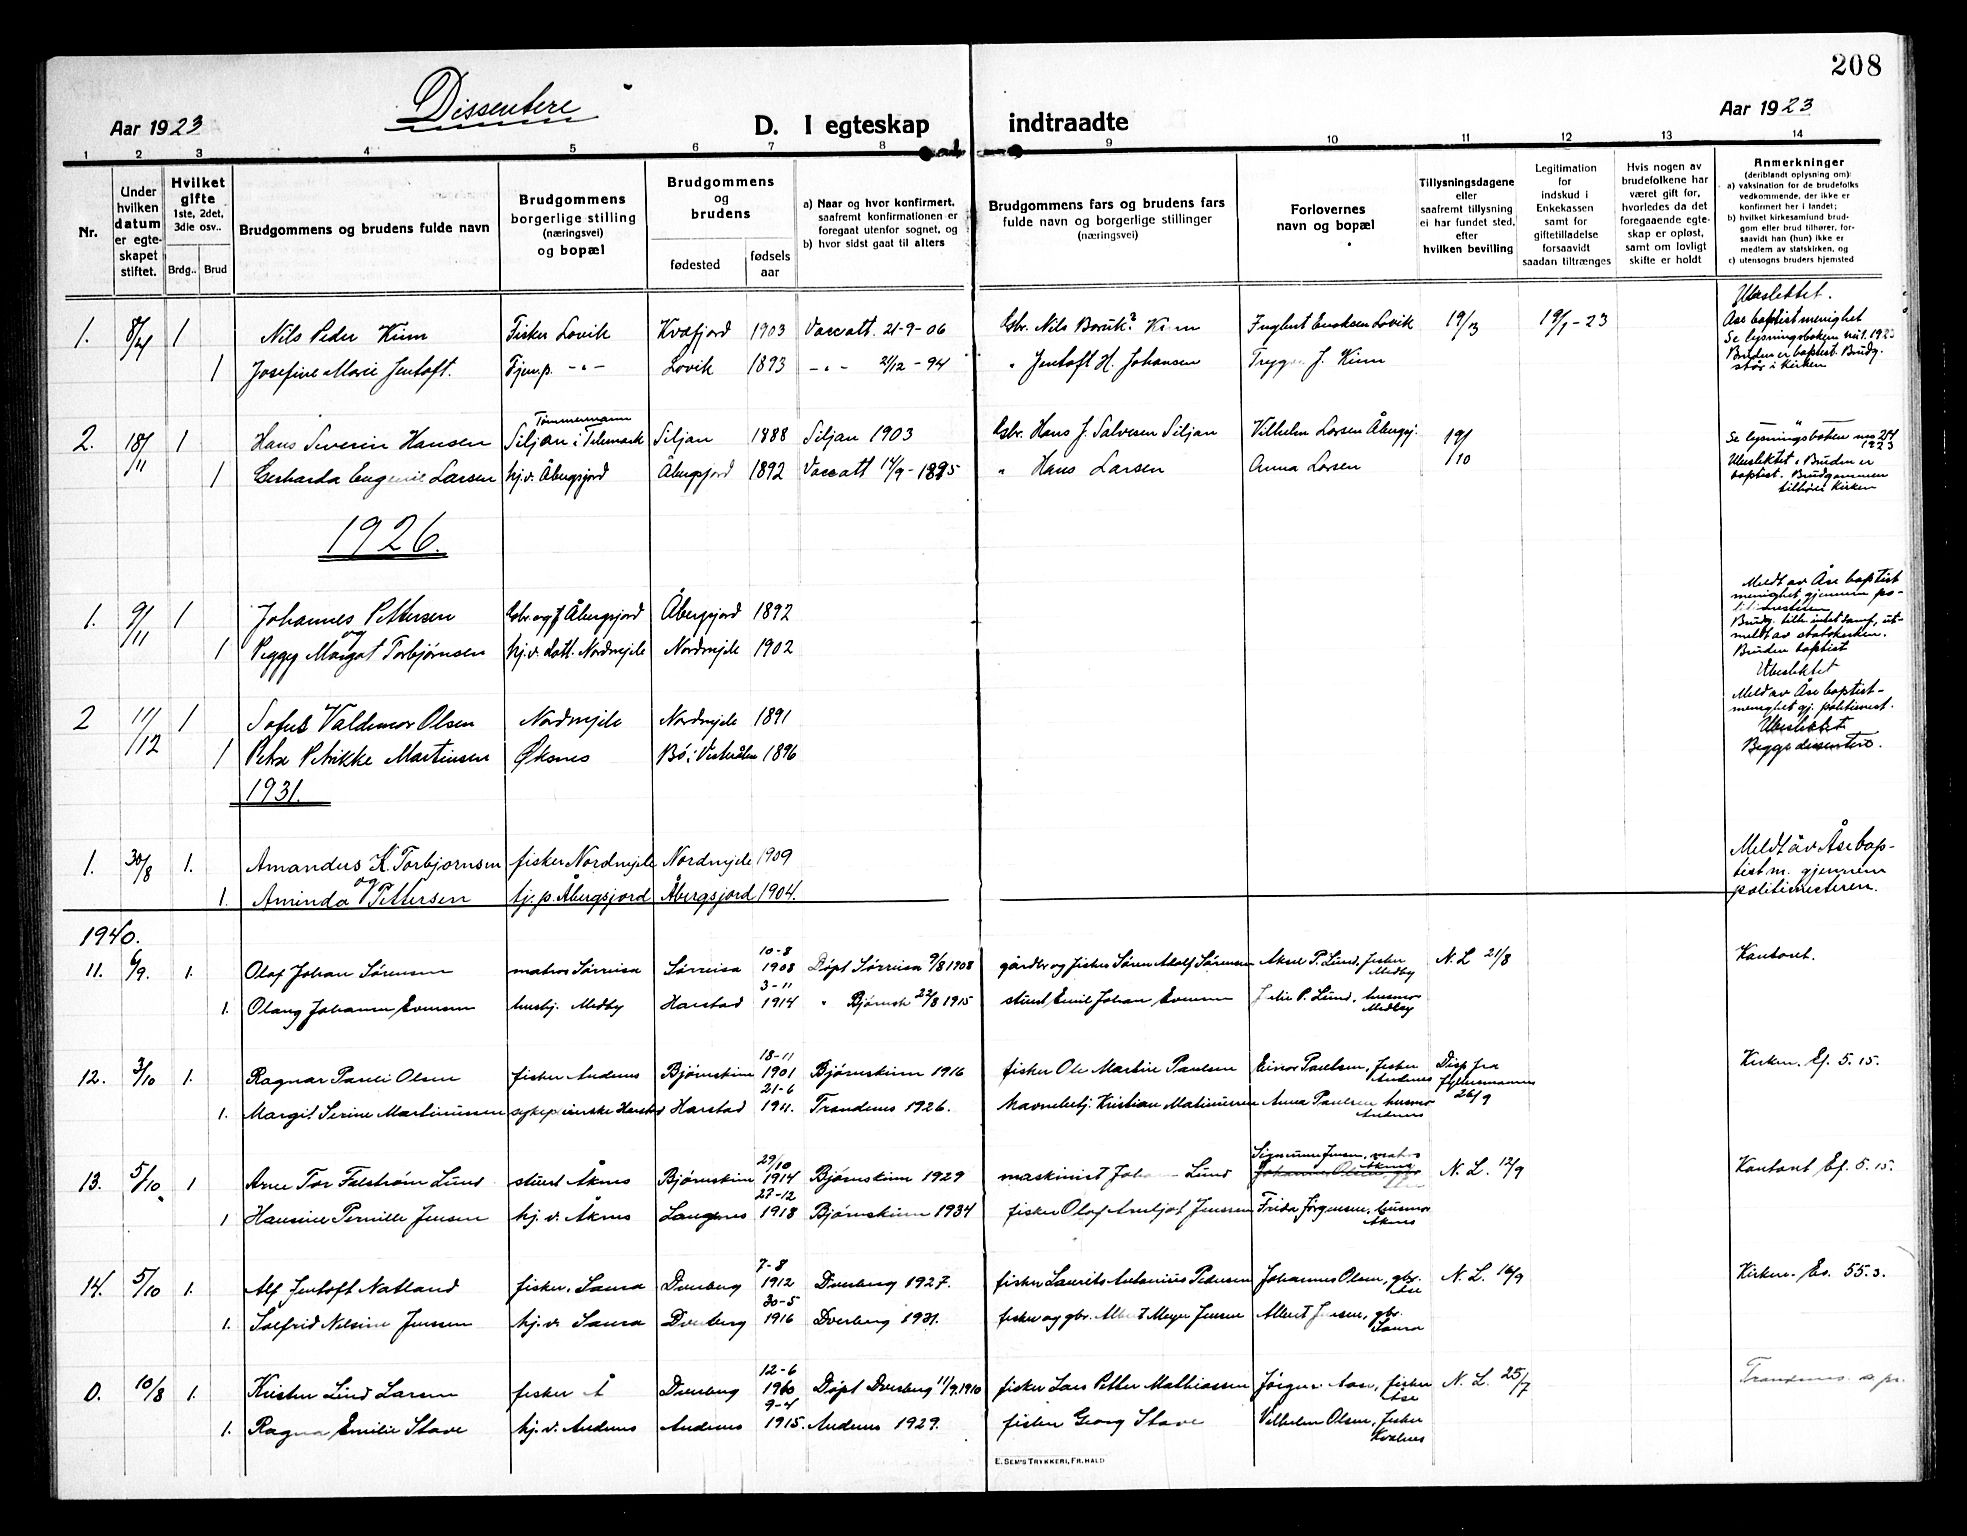 208
Dissentere
Aar 1923
D. I egteskap indtraadte
Aar 1923
1 2 3 4 5 6 7 8 9 10 11 12 13 14
Nr.
Under hvilken datum er egteskapet stiftet.
Hvilket gifte 1ste, 2det, 3die osv..
Brdg.. Brud
Brudgommens og brudens fulde navn
Brudgommens borgerlige stilling (næringsvei) og bopæl
Brudgommens og brudens
fødested
fødsels aar
a) Naar og hvor konfirmert, saafremt konfirmationen er foregaat utenfor sognet, og
b) hvor sidst gaat til alters
Brudgommens fars og brudens fars fulde navn og borgerlige stillinger (næringsvei)
Forlovernes navn og bopæl
Tillysningsdagene eller saafremt tillysning ei har fundet sted, efter hvilken bevilling
Legitimation for indskud i Enkekassen samt for giftetilladelse forsaavidt saadan tiltrænges
Hvis nogen av brudefolkene har været gift før, hvorledes da det foregaaende egteskap er opløst, samt om lovligt skifte er holdt
Anmerkninger (deriblandt oplysning om):
a) vaksination for de brudefolks vedkommende, der ikke er konfirmert her i landet;
b) hvilket kirkesamlund brudgom eller brud tilhører, forsaavidt han (hun) ikke er medlem av statskirken, og
c) utensogns bruders hjemsted
1. 8/4 1 Nils Peder Kiim Fisker Lovik Kvæfjord 1903 Vaccatt. 21-9-06 Gbr. Nils Kiim Lovik 19/3 19/1-23
1 Josefine Marie Jentoft. Tjen.p. -"- Lovik 1893 -"- 21/12-94 " Jentoft H. Johansen J. Kiim
Ubeslektet.
Åse baptistmenighet
Se lysningsboken 1923
Bruden er baptist. Brudg.
står i Kirken
2. 18/11 1 Hans Severin Hansen Tømmermann Siljan i Telemark Siljan 1888 Siljan 1903 Gbr. Hans J. Salvesen Siljan Vilhelm Larsen Åbergsj. 19/10
1 Gerharda Eugenie Larsen hj.v. Åbergsjord Åbergsjord 1892 Vaccatt 14/9-1895 " Hans Larsen Anna Larsen
Se lysningsboken 1923
Ubeslektet. Bruden er
baptist. Brudgommen
tilhører Kirken
1926.
1. 9/11 1 Johannes Pettersen Gbr. og f Åbergsjord Åbergsjord 1892
og
1 Peggy Margot Torbjørnsen hj.v. datt. Nordmjele Nordmjele 1902
Meldt av Åse baptist
menighet gjennem po-
Brudg. ut-
meldt av statskirken.
Bruden baptist
Ubeslektet
2 11/12 1 Sofus Valdemar Olsen Nordmjele Nordmjele 1891
1 Petra Petrikke Martinsen Øksnes Bø i Vesterålen 1896
Meld av Åse baptist-
menighet gj. politimest.
Ubeslektet
Begge dissentere.
1931.
1. 30/8 1. Amandus K. Torbjørnsen fisker Nordmjele Nordmjele 1909
og
1. Aminda Pettersen tj. p. Åbergsjord Åbergsjord 1904.
Meldt av Åse bap-
tist m. gjennem
politimesteren.
1940.
11. 6/9. 1. Olaf Johan Sørensen matros Sørreisa Sørreisa 10-8 1908 Døpt Sørreisa 9/8 1908 gårdbr og fisker Søren Adolf Sørensen Aksel P. Lund, fisker Medby N.L. 21/8 Kantoret.
1. Olaug Johanna Evensen hushj. Medby Harstad 3-11 1914 " Bjørnsk 22/8 1915 stuert Emil Johan Evensen P. Lund, husmor Medby
12. 3/10 1. Ragnar Pareli Olsen fisker Andenes Bjørnskinn 18-11 1901 Bjørnskinn 1916 fisker Ole Martin Paulsen Einar Paulsen, fisker Andenes Disp fra fylkesmannen 26/9 Kirken. Ef. 5.15.
1. Margit Serine Martinussen sykepleierske Harstad Harstad 21-6 1911. Trondenes 1926. Kristian Martinussen Anna Paulsen husmor Andenes
13. 5/10 1 Arne Tor Falstrøm Lund stuert Åknes Bjørnskinn 29/10 1914 Bjørnskinn 1929 maskinist Lund Sigmund Jensen, Åknes N.L. 12/9 Kantoret Ef. 5.15.
1 Hansine Pernille Jensen hj.v. Åknes Langenes 27-12 1918 Bjørnskinn 1934 fisker Olaf Jenssen Frida Jørgensen, husmor Åknes
14. 5/10 1. Alf Jentoft Natland fisker, Saura Dverberg 7-8 1912 Dverberg 1927. fisker Laurits Antonius Pedersen Johannes Olsen, gbr. Åse N.L. 16/9 Kirken. Es. 55.3.
1. Solfrid Nelsine Jenssen hj.v. Saura Dverberg 30-5 1916 Dverberg 1931. fisker og gbr. Albert Meyer Jensen Albert Jensen, gbr. Saura
0. 10/8 1. Kristen Lind Larsen fisker Å Dverberg 12-6 1910 Døpt Dverberg 11/9 1910 fisker Lars Petter Mathiassen Jørgen Aase, fisker Åse N.L. 25/7 Trondenes
1. Ragna Emilie Stave hj.v. Andenes Andenes 9-4 1915. Andenes 1929. fisker Georg Stave Vilhelm Olsen, fisker Kvalnes
E. SEM'S TRYKKERI, FR.HALD